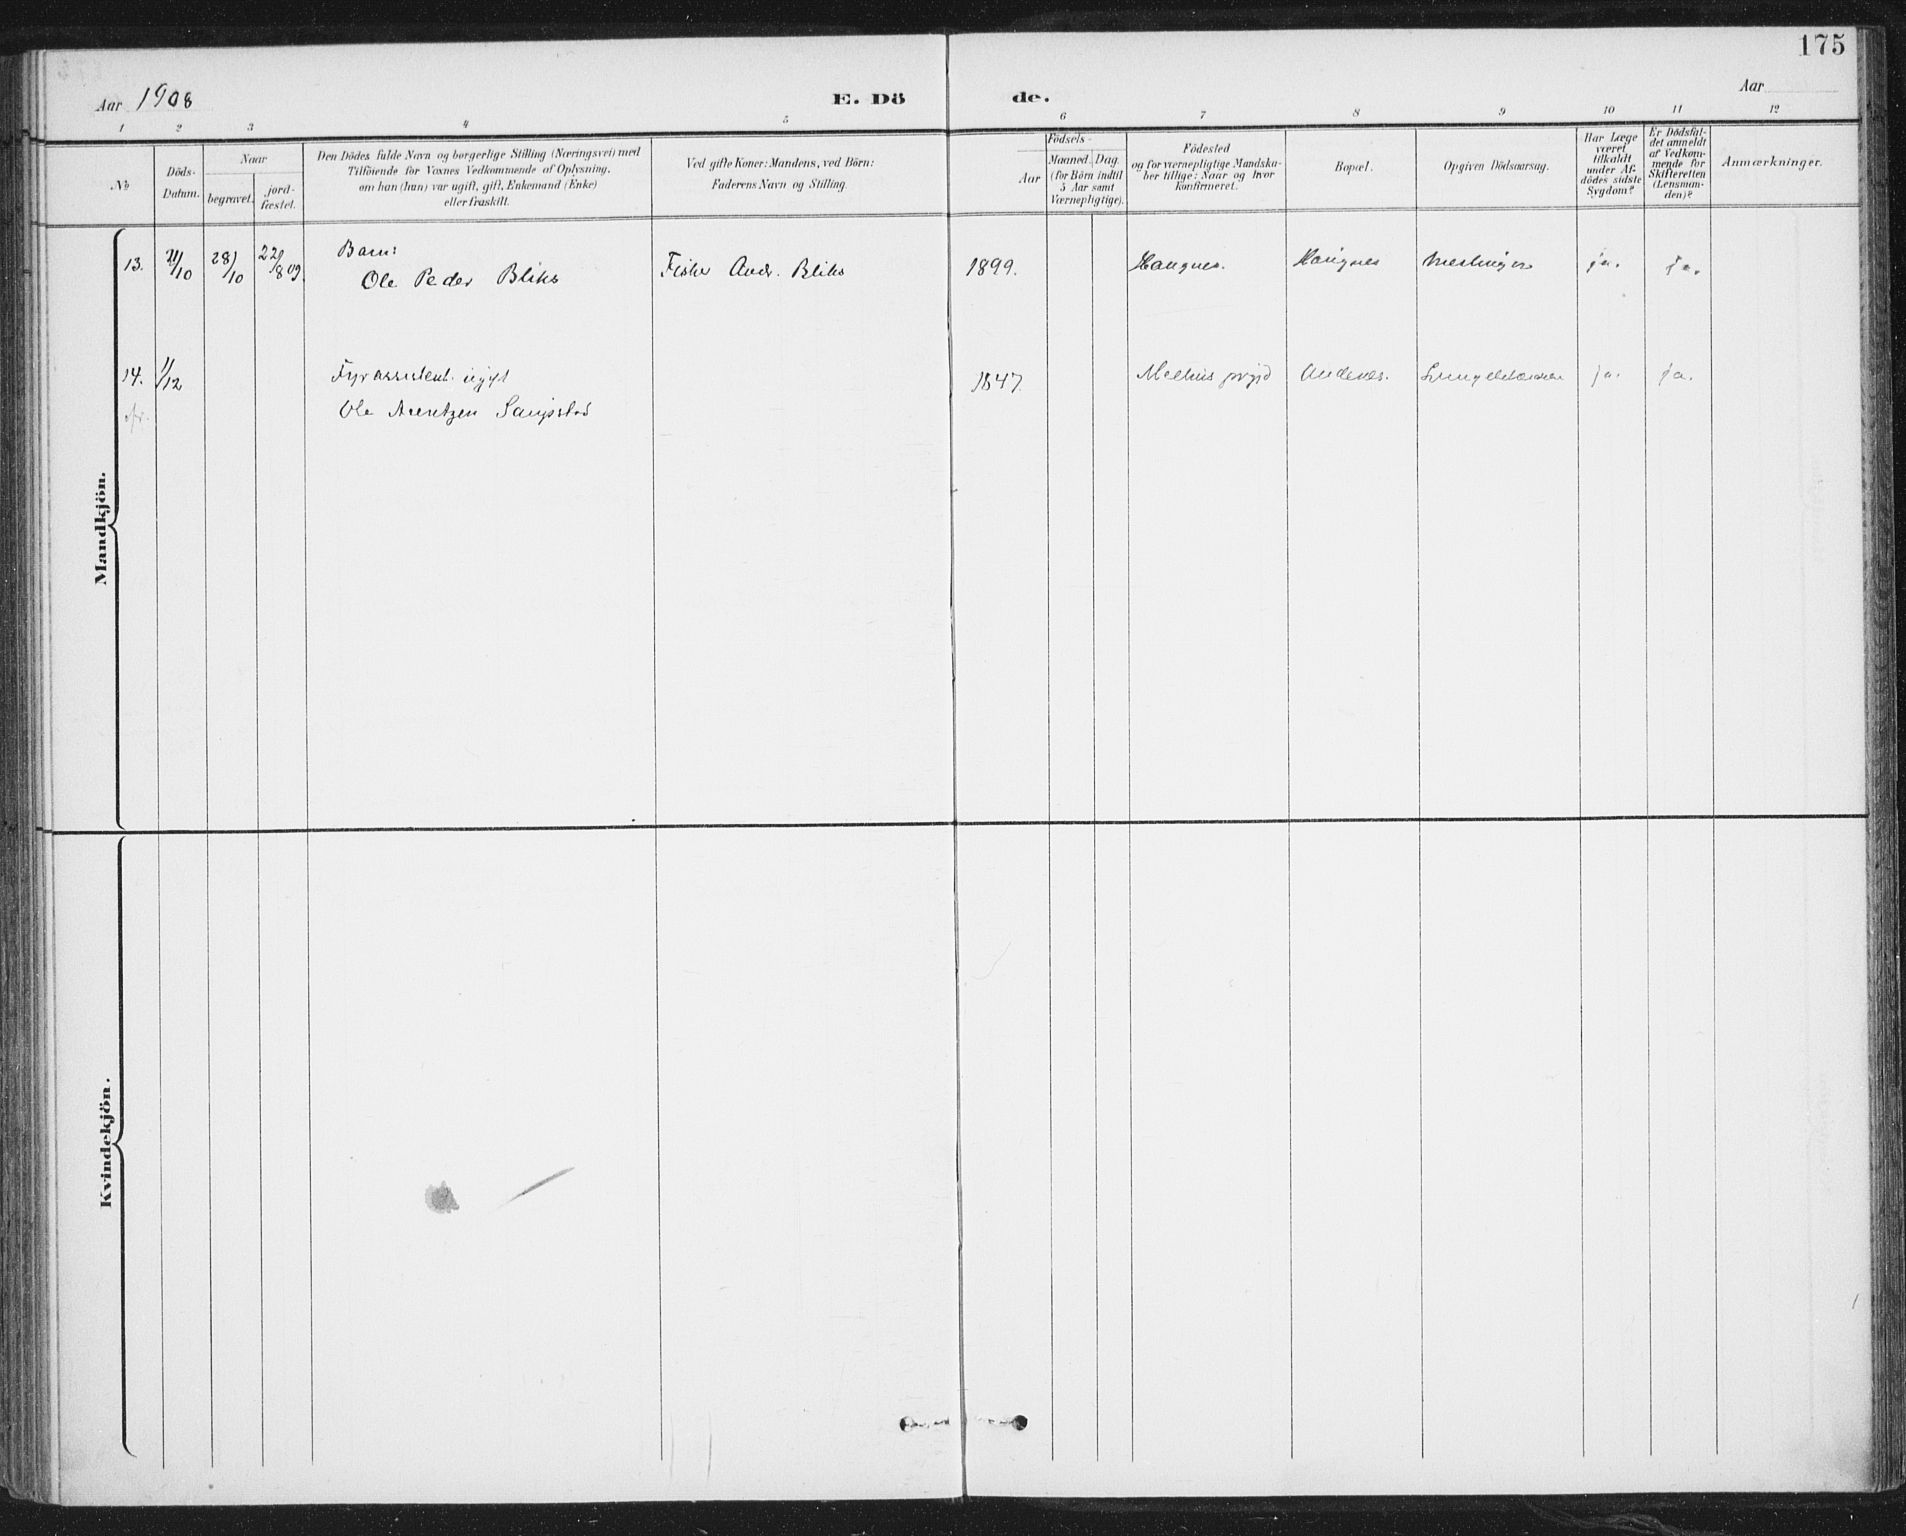 175
Aar 1908
E. Dö de.
Aar
1 2 3 4 5 6 7 8 9 10 11 12
No
Döds-Datum.
Naar
begravet.
jord-fæstet.
Den Dödes fulde Navn og borgerlige Stilling (Næringsvei) med
Tilföiende for Voxnes Vedkommende af Oplysning,
om han (hun) var ugift, gift, Enkemand (Enke)
eller fraskilt.
Ved gifte Koner: Mandens, ved Börn:
Faderens Navn og Stilling.
Födsels-
Aar
Maaned. Dag.
(for Börn indtil
5 Aar samt
Værnepligtige).
Födested
og for værnepligtige Mandska-
ber tillige: Naar og hvor
konfirmeret.
Bopæl.
Opgiven Dödsaarsag.
Har Læge
været
tilkaldt
under Af-
dödes sidste
Sygdom?
Er Dödsfal-
det anmeldt
af Vedkom-
mende for
Skifteretten
(Lensman-
den)?
Anmærkninger.
Mandkjön.
13. 21/10 28/10 22/8 09. Barn:
Ole Peder Bliks Fisker Andr. Bliks 1899. Haugnes. Haugnes ja. ja.
14. 1/12 Fyrassistent ugift 1847. Melhus prgjd Andenes. Lungebetændelse ja. ja.
Ole Arentzen
Kvindekjön.